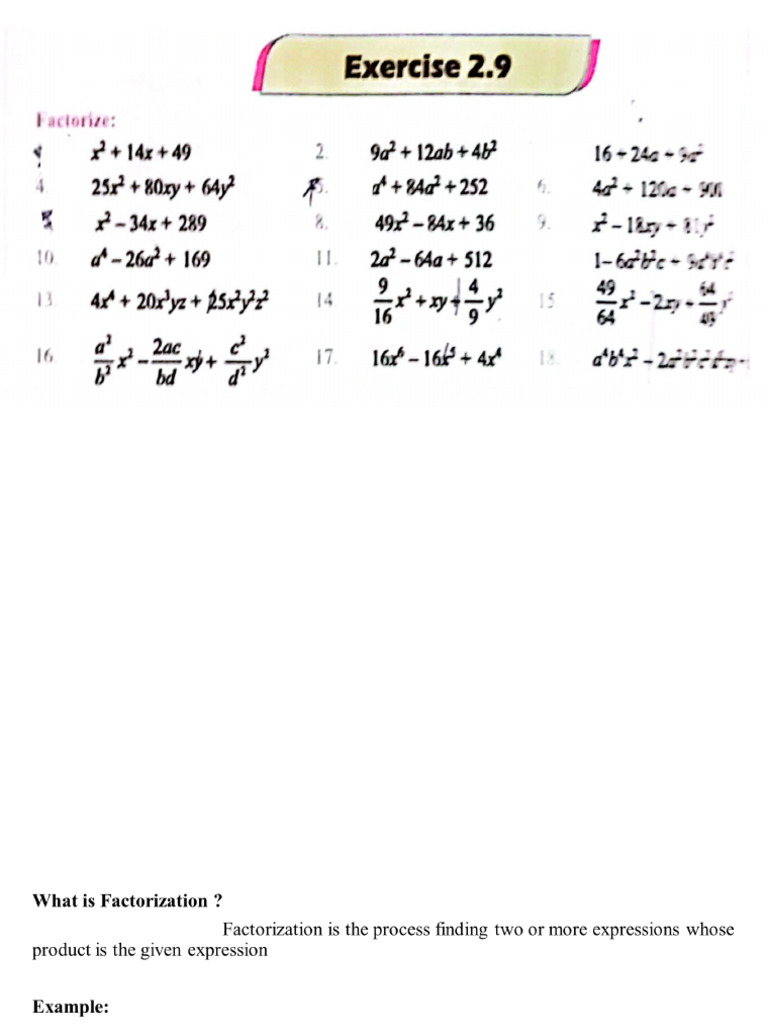 Exercise 2.9
Factorize:
x² + 14x + 49 2. 9a² + 12ab + 4b² 16 + 24a + 9a²
4. 25x² + 80xy + 64y² 5. a⁴ + 84a² + 252 6. 4a² + 120a + 900
x² – 34x + 289 8. 49x² – 84x + 36 9. x² – 18xy + 81y²
10. a⁴ – 26a² + 169 11. 2a² – 64a + 512 1– 6a²b²c +
13. 4x⁴ + 20x³yz + 25x²y²z² 14. 9/16 x² + xy + 4/9 y² 15 49/64 x² – 2xy + 64/49 y²
16. a²/b² x² – 2ac/bd xy + c²/d² y² 17. 16x⁶ – 16x⁵ + 4x⁴ 18. a⁴b⁴x² –
What is Factorization ?
Factorization is the process finding two or more expressions whose
product is the given expression
Example: